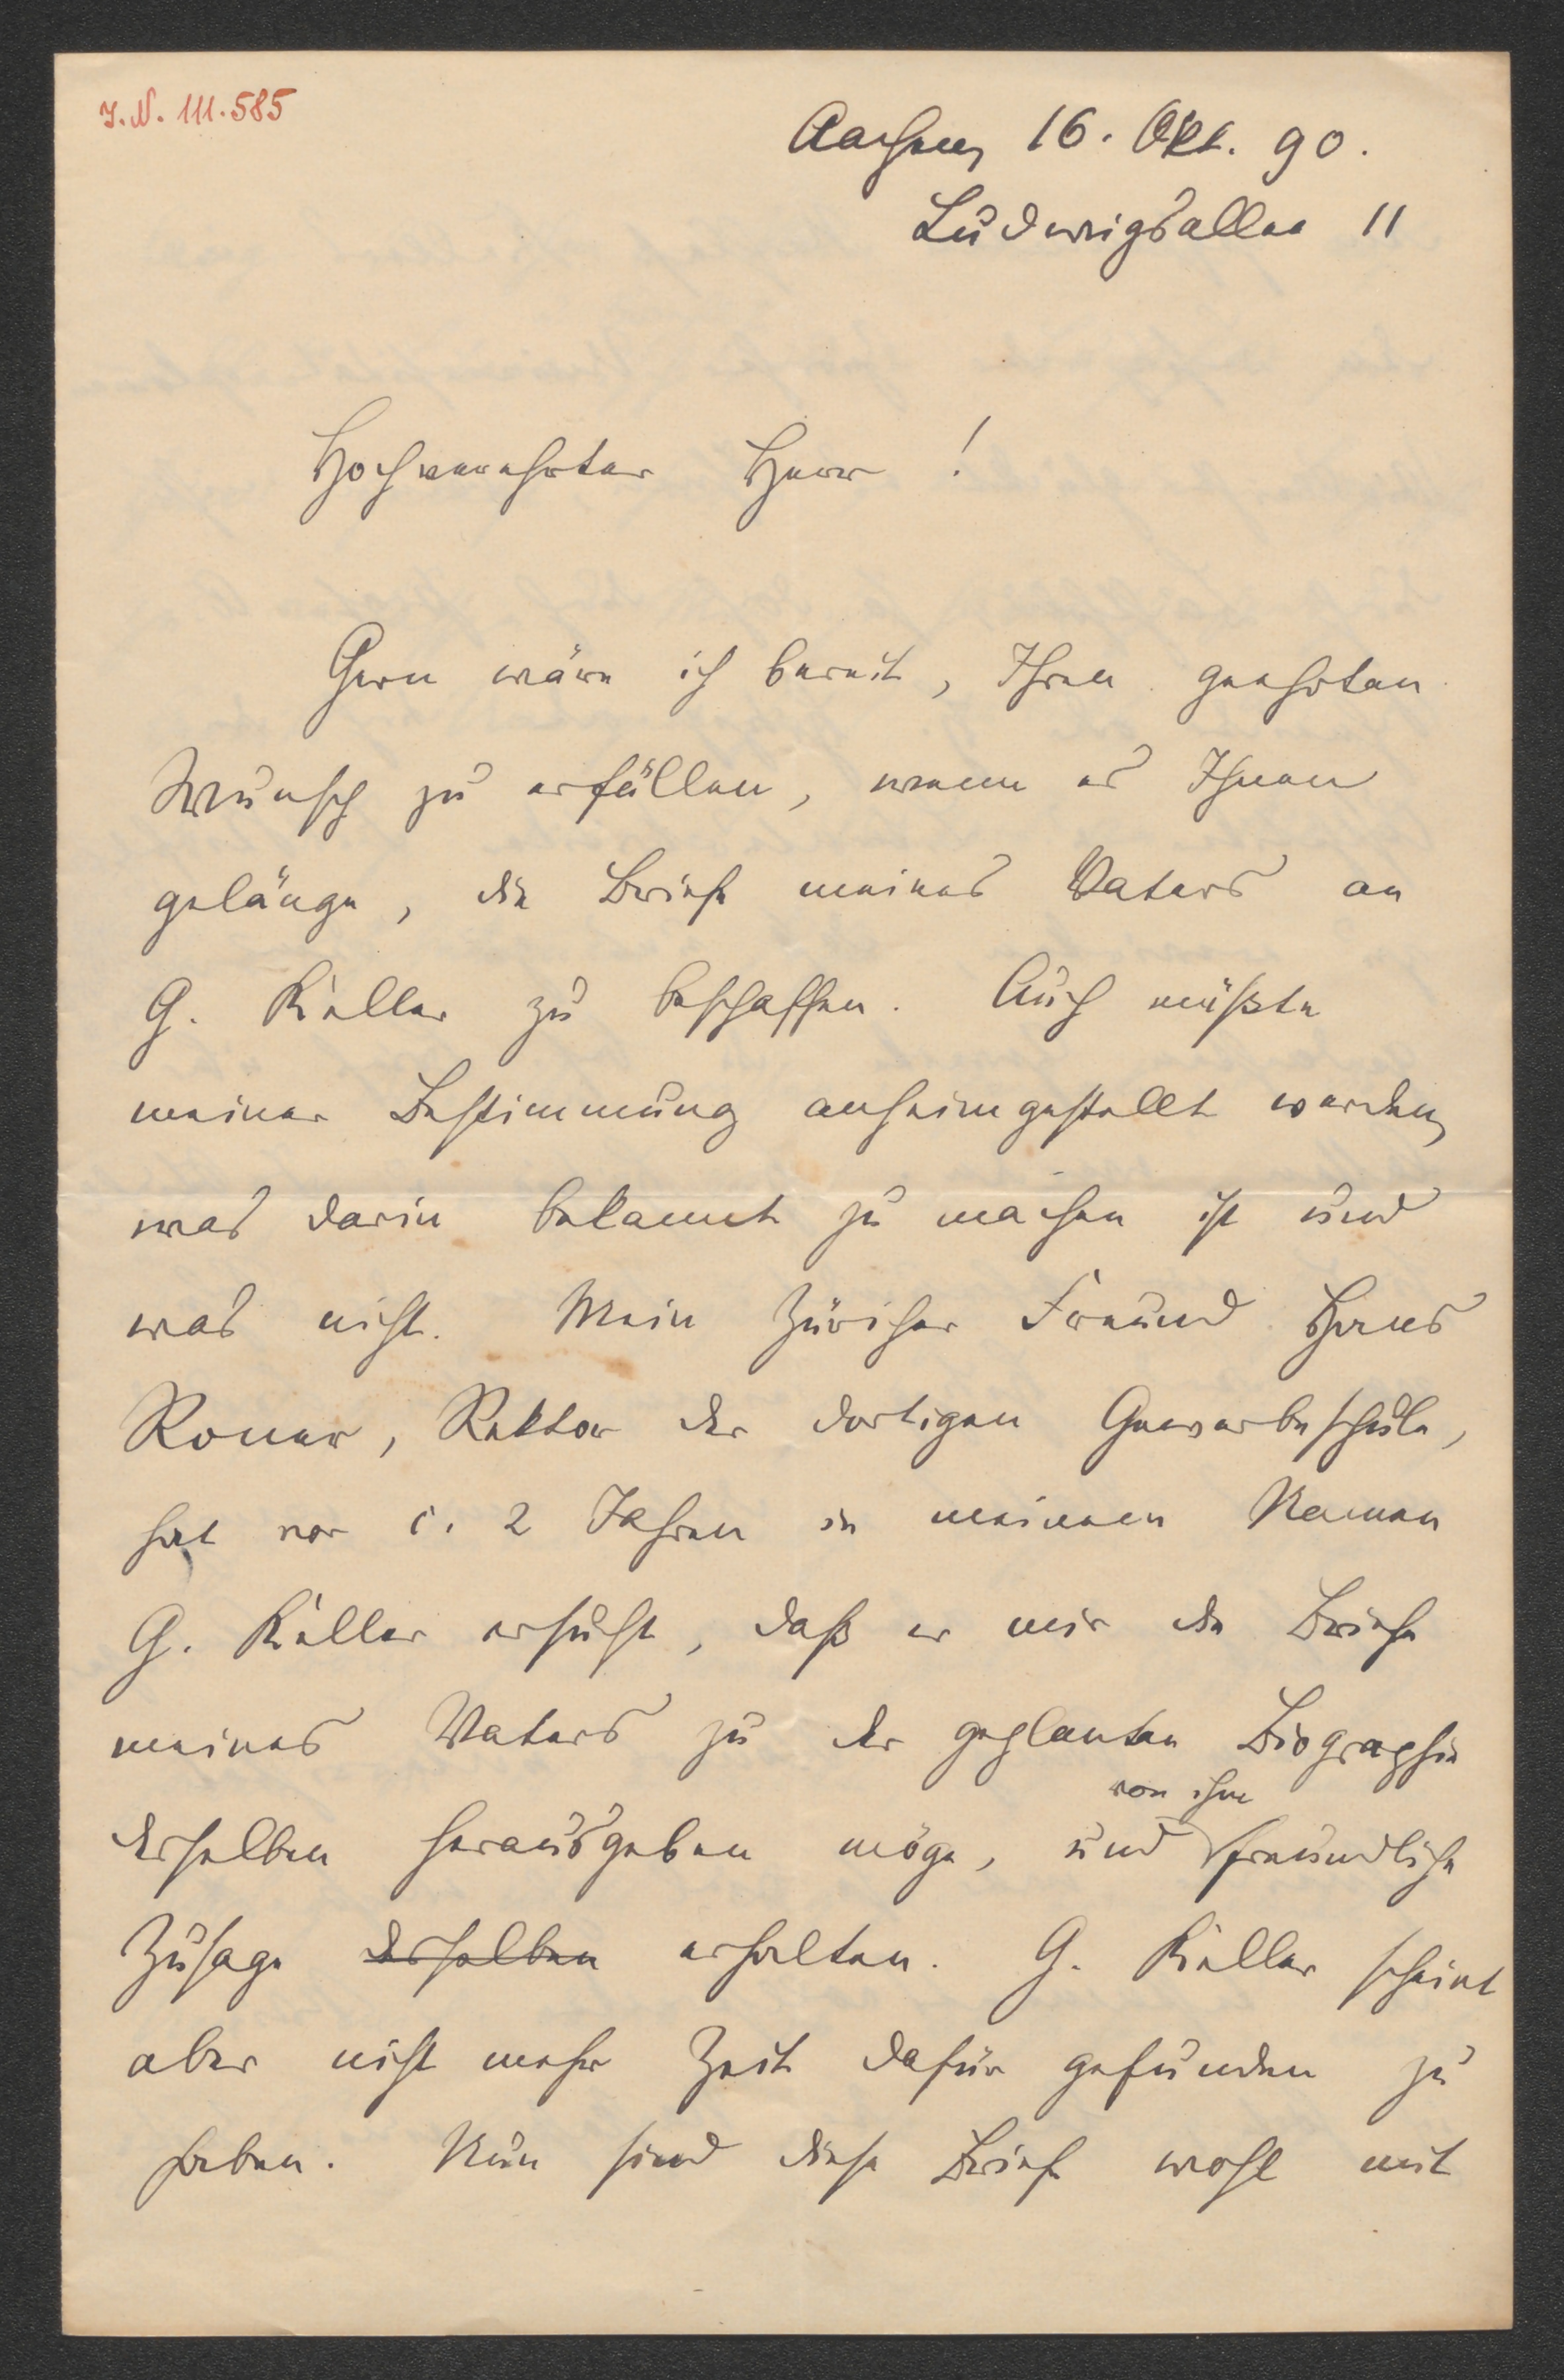 I. N. 111.585
Aachen, 16. Okt. 90.
Ludwigsallee 11
Hochverehrter Herr !
Gern wäre ich bereit, Ihren geehrten
Wunsch zu erfüllen, wenn es Ihnen
gelänge, die Briefe meines Vaters an
G. Keller zu beschaffen. Auch müßte
meiner Bestimmung anheimgestellt werden,
was darin bekannt zu machen ist und
was nicht. Mein Züricher Freund Hans
Roner, Rektor der dortigen Gewerbeschule,
hat vor c. 2 Jahren in meinem Namen
G. Keller ersucht, daß er mir die Briefe
meines Vaters zu der geplanten Biographie
von ihm
desselben herausgeben möge, und freundliche
Zusage desselben erhalten. G. Keller scheint
aber nicht mehr Zeit dafür gefunden zu
haben. Nun sind diese Briefe wohl mit